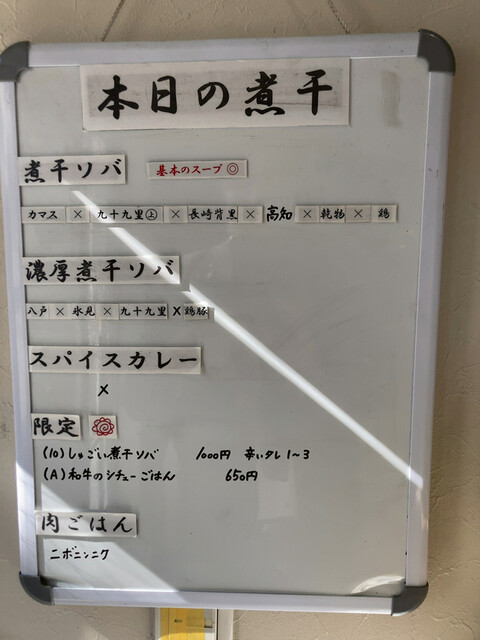 本日の煮干
煮干ソバ 基本のスープ◎
カマス × 九十九里㊤ × 長崎背黒 × 高知 × 乾物 × 鶏
濃厚煮干ソバ
八戸 × 氷見 × 九十九里 × 鶏豚
スパイスカレー
×
限定
(10)しゅごい煮干ソバ 1000円 辛いタレ1〜3
(A)和牛のシチューごはん 650円
肉ごはん
ニボニンニク